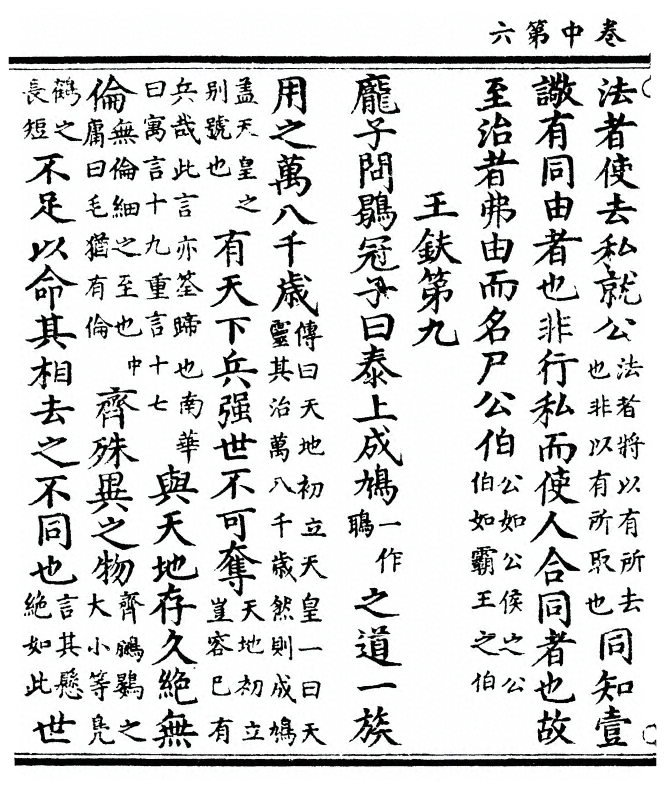 卷中第六
法者使去私就公法者將以有所去也非以有所取也同知壹
譤有同由者也非行私而使人合同者也故
至治者弗由而名尸公伯公如公侯之公伯如霸王之伯
王鈇第九
龐子問鶡冠子曰泰上成鳩一作之道一族
用之萬八千歲傳曰天地初立天皇一曰天靈其治萬八千歲然則成鳩
蓋天皇之別號也有天下兵强世不可奪天地初立豈容已有
兵哉此言亦筌蹄也南華曰寓言十九重言十七與天地存久絶無
倫無倫細之至也中庸曰毛猶有倫齊殊異之物齊鵬鷃之大小等鳧
鶴之長短不足以命其相去之不同也言其懸絶如此世